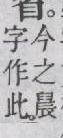 今之晨
字作此。